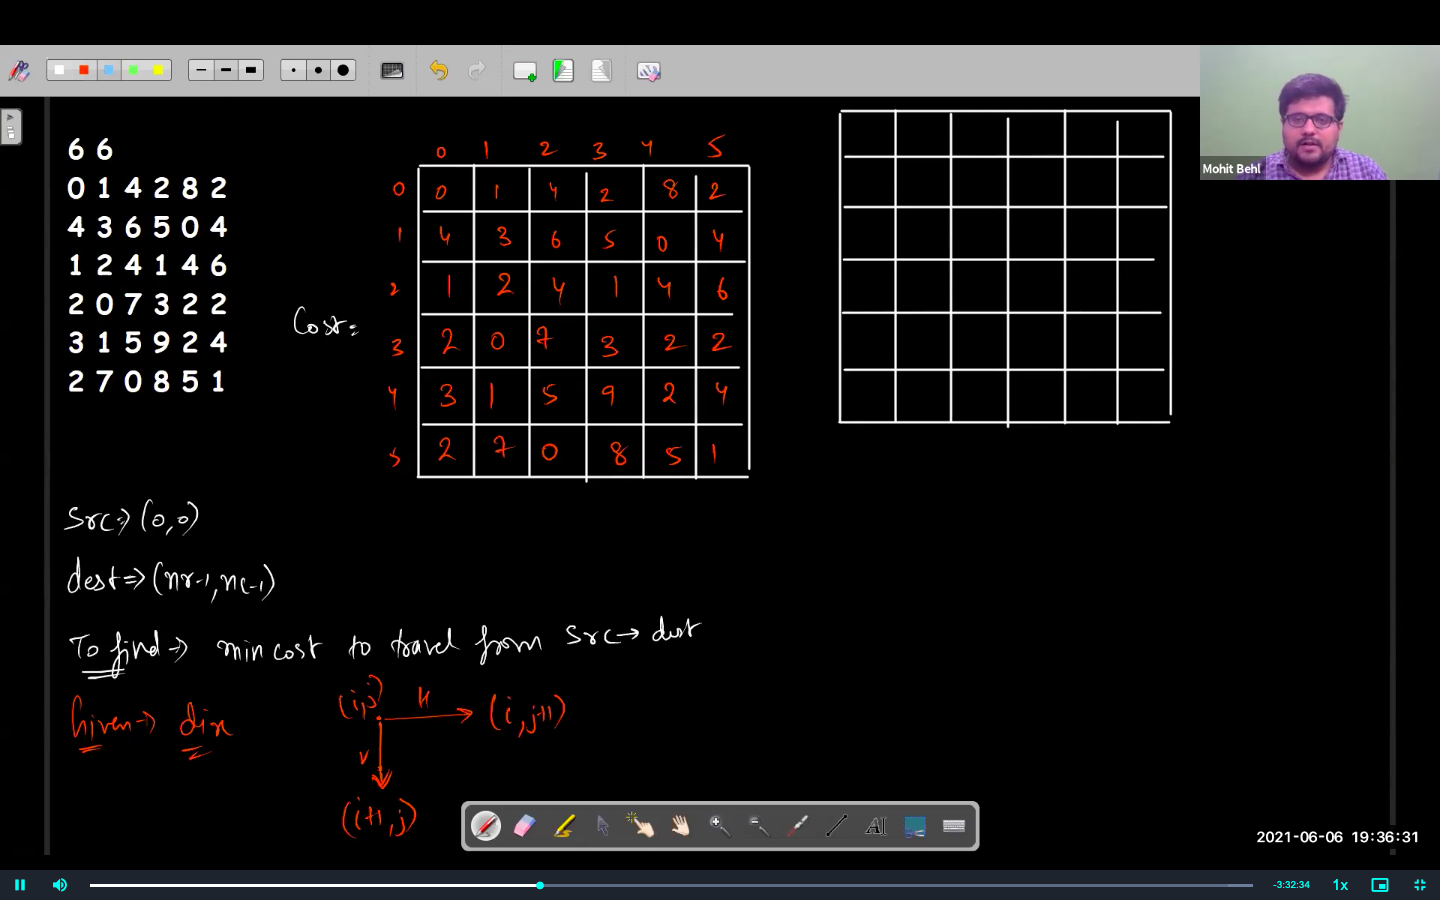 6 6
0 1 4 2 8 2
4 3 6 5 0 4
1 2 4 1 4 6
2 0 7 3 2 2
3 1 5 9 2 4
2 7 0 8 5 1
Cost =
0 1 2 3 4 5
0 0 1 4 2 8 2
1 4 3 6 5 0 4
2 1 2 4 1 4 6
3 2 0 7 3 2 2
4 3 1 5 9 2 4
5 2 7 0 8 5 1
Mohit Behl
Src⇒(0,0)
dest⇒(nr-1,nc-1)
To find⇒ min cost to travel from src→dest
Given→ dir
(i,j) H (i,j+1)
V
(i+1,j)
AI
2021-06-06 19:36:31
-3:32:34
1x